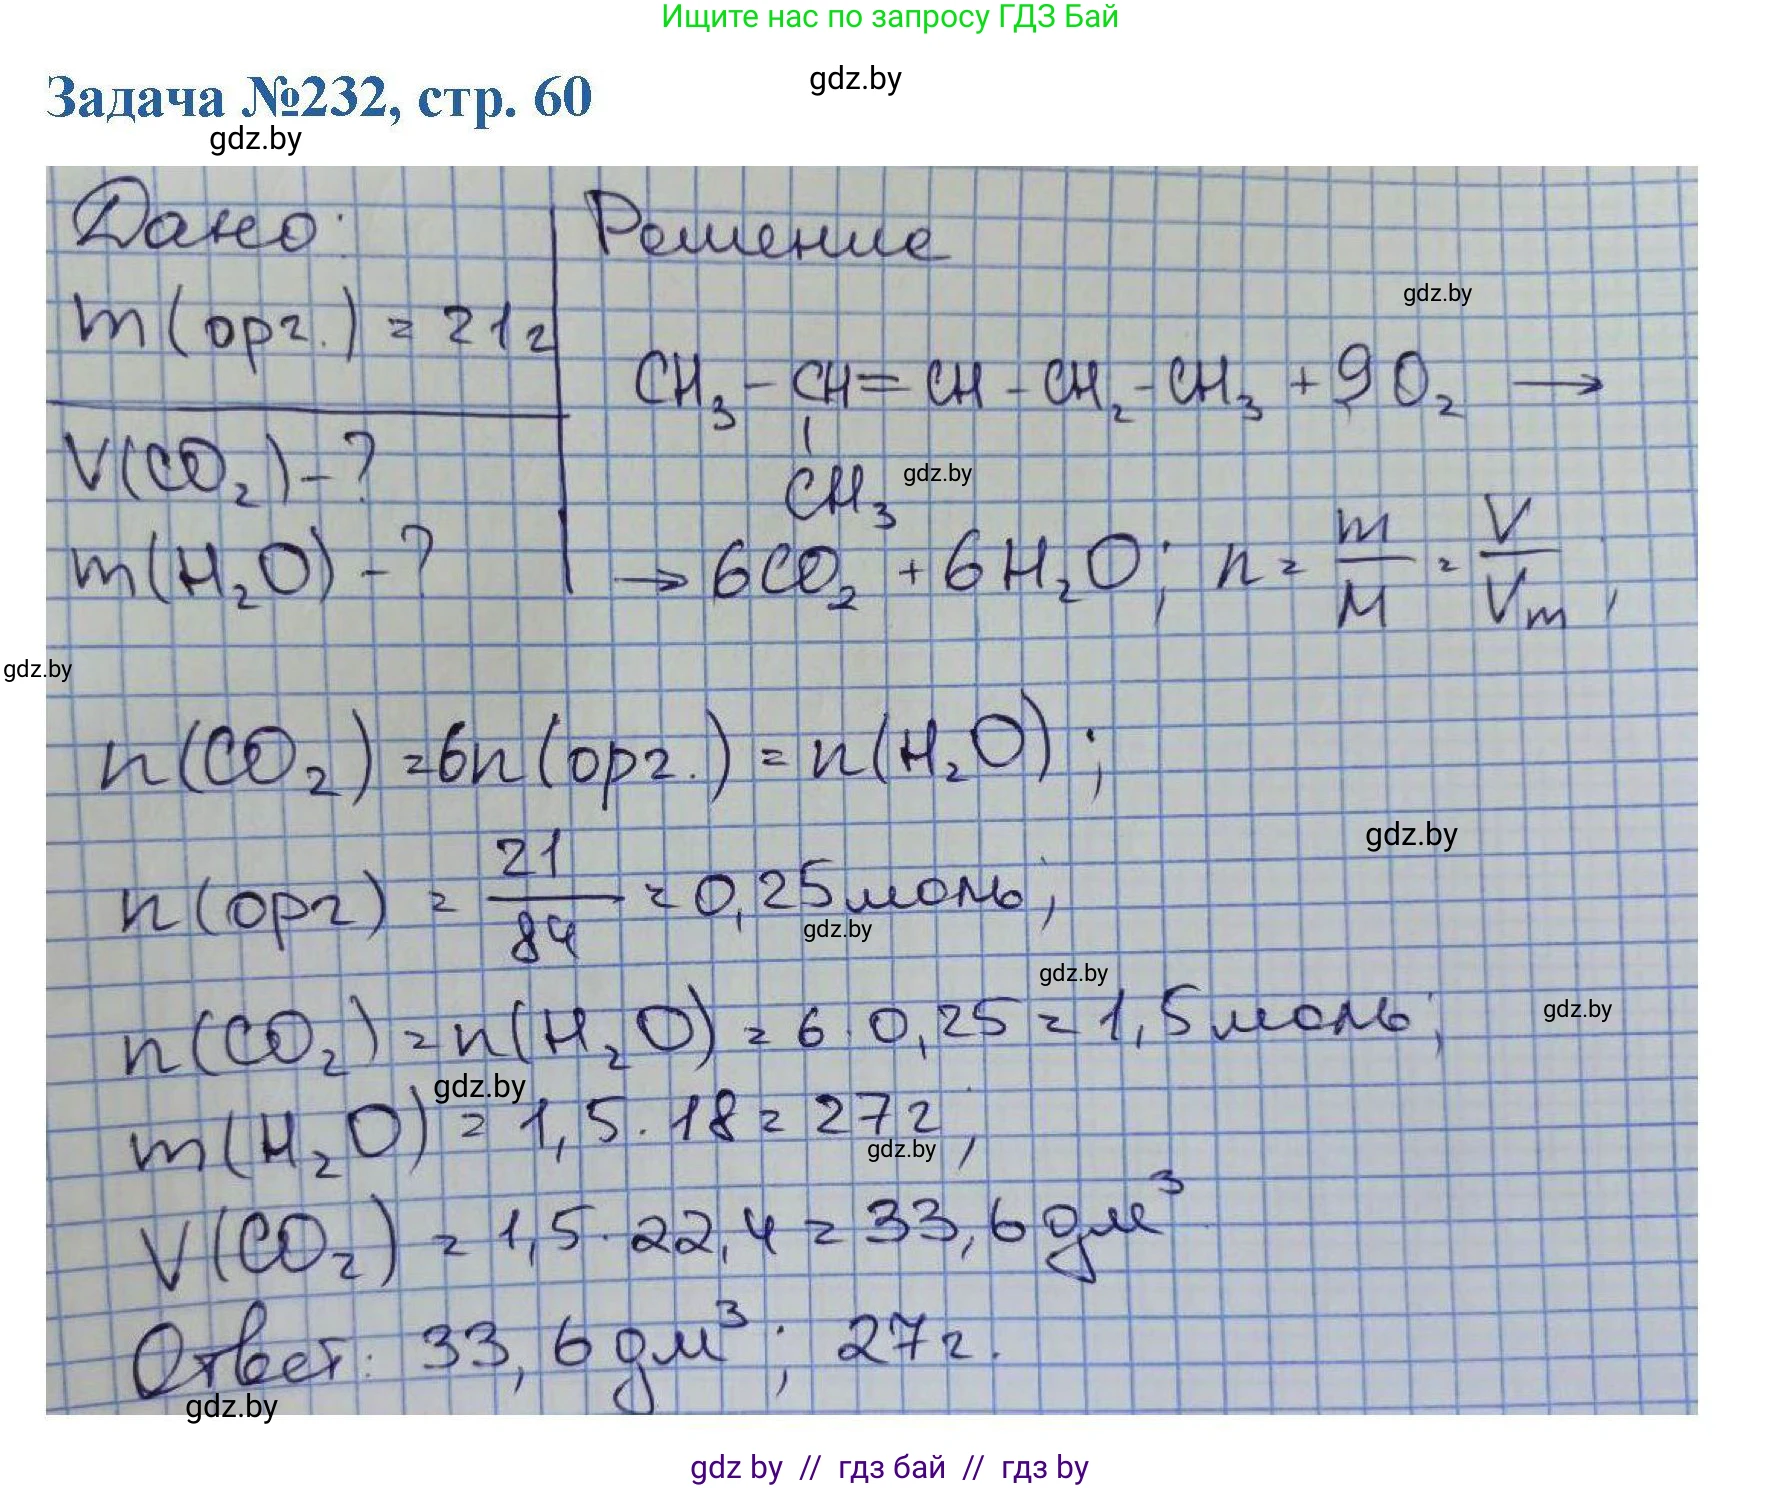 Ищите нас по запросу ГДЗ Бай
gdz.by
Задача №232, стр. 60
gdz.by
Дано: Решение
m(орг.) = 21г
gdz.by
CH₃ - CH = CH - CH₂ - CH₃ + 9O₂ →
CH₃
gdz.by
V(CO₂) - ?
m(H₂O) - ?
→ 6CO₂ + 6H₂O; n = m/M = V/Vm;
gdz.by
n(CO₂) = 6n(орг.) = n(H₂O);
gdz.by
n(орг) = 21/84 = 0,25 моль;
gdz.by
gdz.by
n(CO₂) = n(H₂O) = 6·0,25 = 1,5 моль;
gdz.by
gdz.by
m(H₂O) = 1,5·18 = 27г;
gdz.by
V(CO₂) = 1,5·22,4 = 33,6 дм³
Ответ: 33,6 дм³; 27г.
gdz.by
gdz by // гдз бай // гдз by